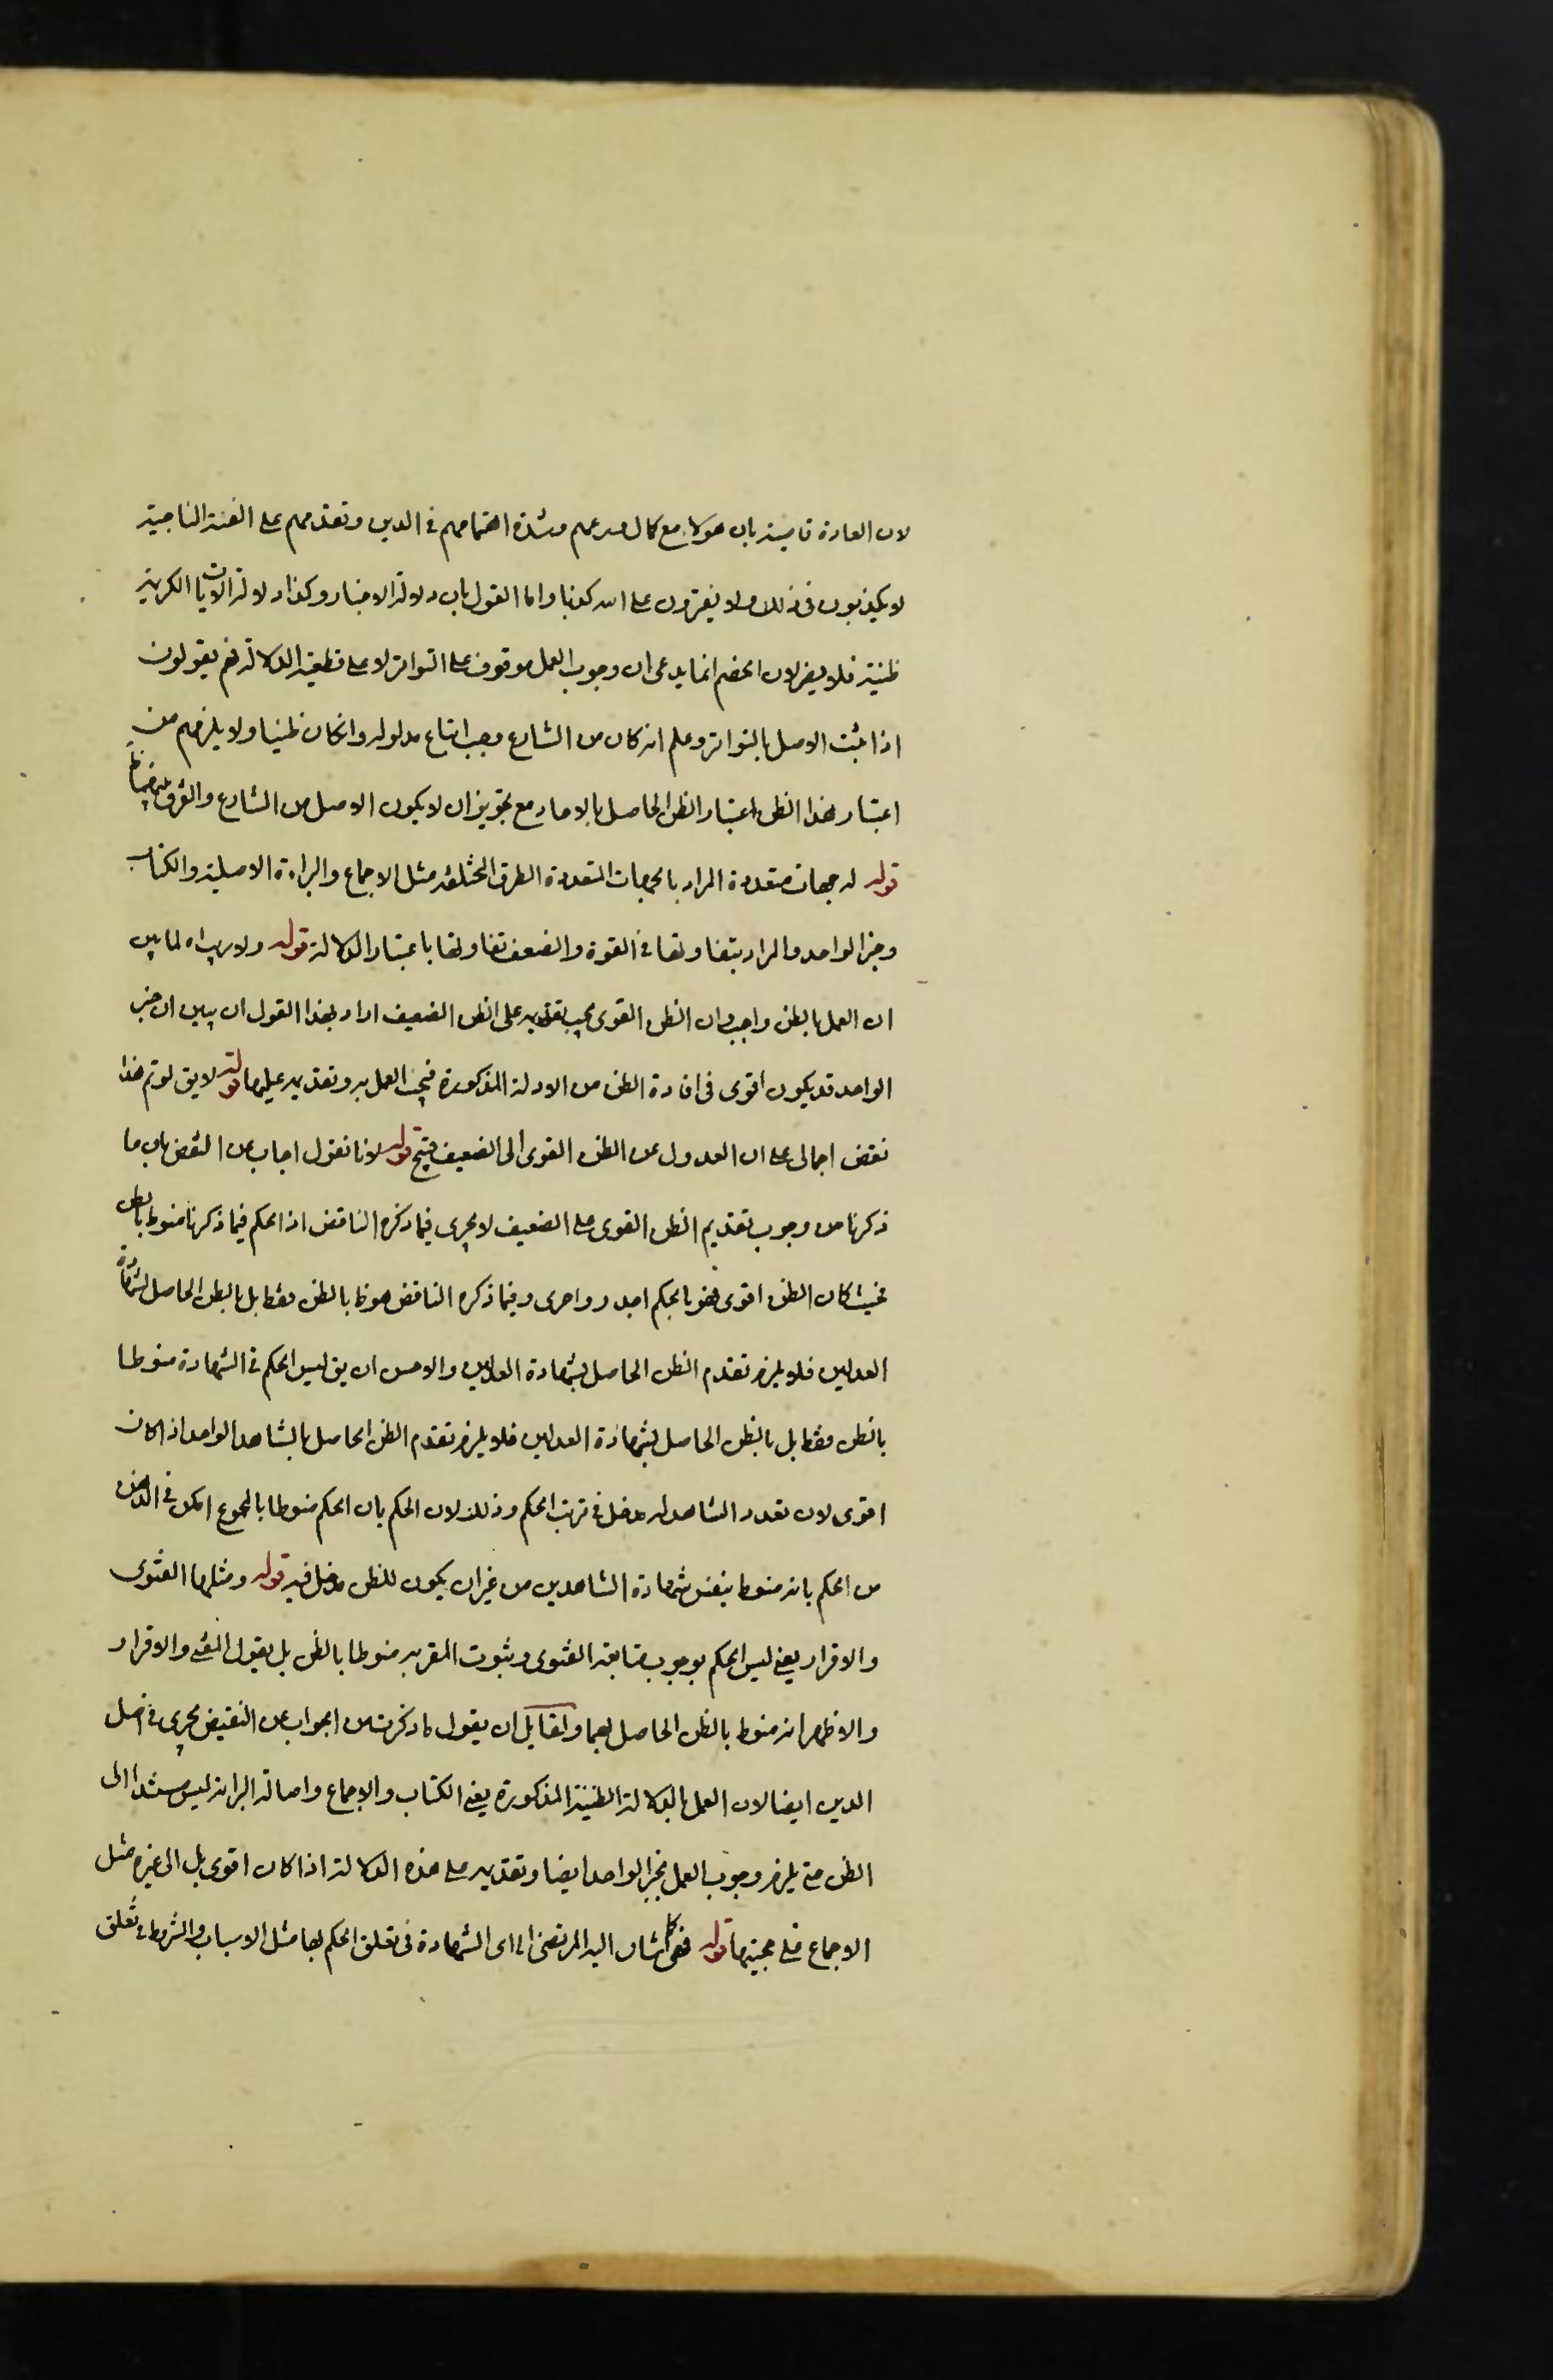 لان العادة قاضية بان هولاء مع كمال ورعهم وشدة اهتمامهم فى الدين وتقدمهم على الفئة الناجية
لا يكذبون فى ذلك ولا يفترون على الله كذبا واما القول بان دلالة الاخبار وكذا دلالة الايات الكريمة
ظنية فلا يضر لان الخصم انما يدعى ان وجوب العمل موقوف على التواتر لا على قطعية الدلالة فهم يقولون
اذا ثبت الاصل بالتواتر وعلم انه كان من الشارع وجب اتباع مدلوله وانكان ظنيا ولا يلزمهم من
اعتبار هذا الظن اعتبار الظن الحاصل بالاحاد مع تجويز ان لا يكون الاصل من الشارع والفرق بينهما ظ
قوله له جهات متعددة المراد بالجهات المتعددة الطرق المختلفة مثل الاجماع والبراءة الاصلية والكتاب
وخبر الواحد والمراد بتفاوتها فى القوة والضعف تفاوتها باعتبار الدلالة قوله ولا ريب اه لما بين
ان العمل بالظن واجب وان الظن القوى يجب تقديمه على الظن الضعيف اراد بهذا القول ان يبين ان خبر
الواحد قد يكون اقوى فى افادة الظن من الادلة المذكورة فيجب العمل به وتقديمه عليها قوله لا يق لو تم هذا
نقض اجمالى على ان العدول عن الظن القوى الى الضعيف قبيح قوله لانا نقول اجاب عن النقض بان ما
ذكرنا من وجوب تقديم الظن القوى على الضعيف لا يجرى فيما ذكره الناقض اذ الحكم فيما ذكرنا منوط بالظن
فحيث كان الظن اقوى فهو بالحكم اجدر واحرى وفيما ذكره الناقض منوطا بالظن فقط بل بالظن الحاصل بشهادة
العدلين فلا يلزم تقدم الظن الحاصل بشهادة العدلين والاحسن ان يق ليس الحكم فى الشهادة منوطا
بالظن فقط بل بالظن الحاصل بشهادة العدلين فلا يلزم تقدم الظن الحاصل بالشاهد الواحد اذا كان
اقوى لان تعدد الشاهد له مدخل فى ترتب الحكم وذلك لان الحكم بان الحكم منوطا بالمجموع امكن فى الذهن
من الحكم بانه منوط بنفس شهادة الشاهدين من غير ان يكون للظن مدخل فيه قوله ومثلها الفتوى
والاقرار يعنى ليس الحكم بوجوب متابعة الفتوى وثبوت المقر به منوطا بالظن بل بقول المفتى والاقرار
والاظهر انه منوط بالظن الحاصل بهما ولقايل ان يقول ما ذكرت من الجواب عن النقيض يجرى فى اصل
الدين ايضا لان العمل بالدلالة الظنية المذكورة يعنى الكتاب والاجماع واصالة البراءة ليس مستندا الى
الظن حتى يلزم وجوب العمل بخبر الواحد ايضا وتقديمه على هذه الدلالة اذا كان اقوى بل الى غيره مثل
الاجماع على حجيتها قوله فهى كما اشار اليه المرتضى اى الشهادة فى تعلق الحكم بها مثل الاسباب والشروط فى تعلق